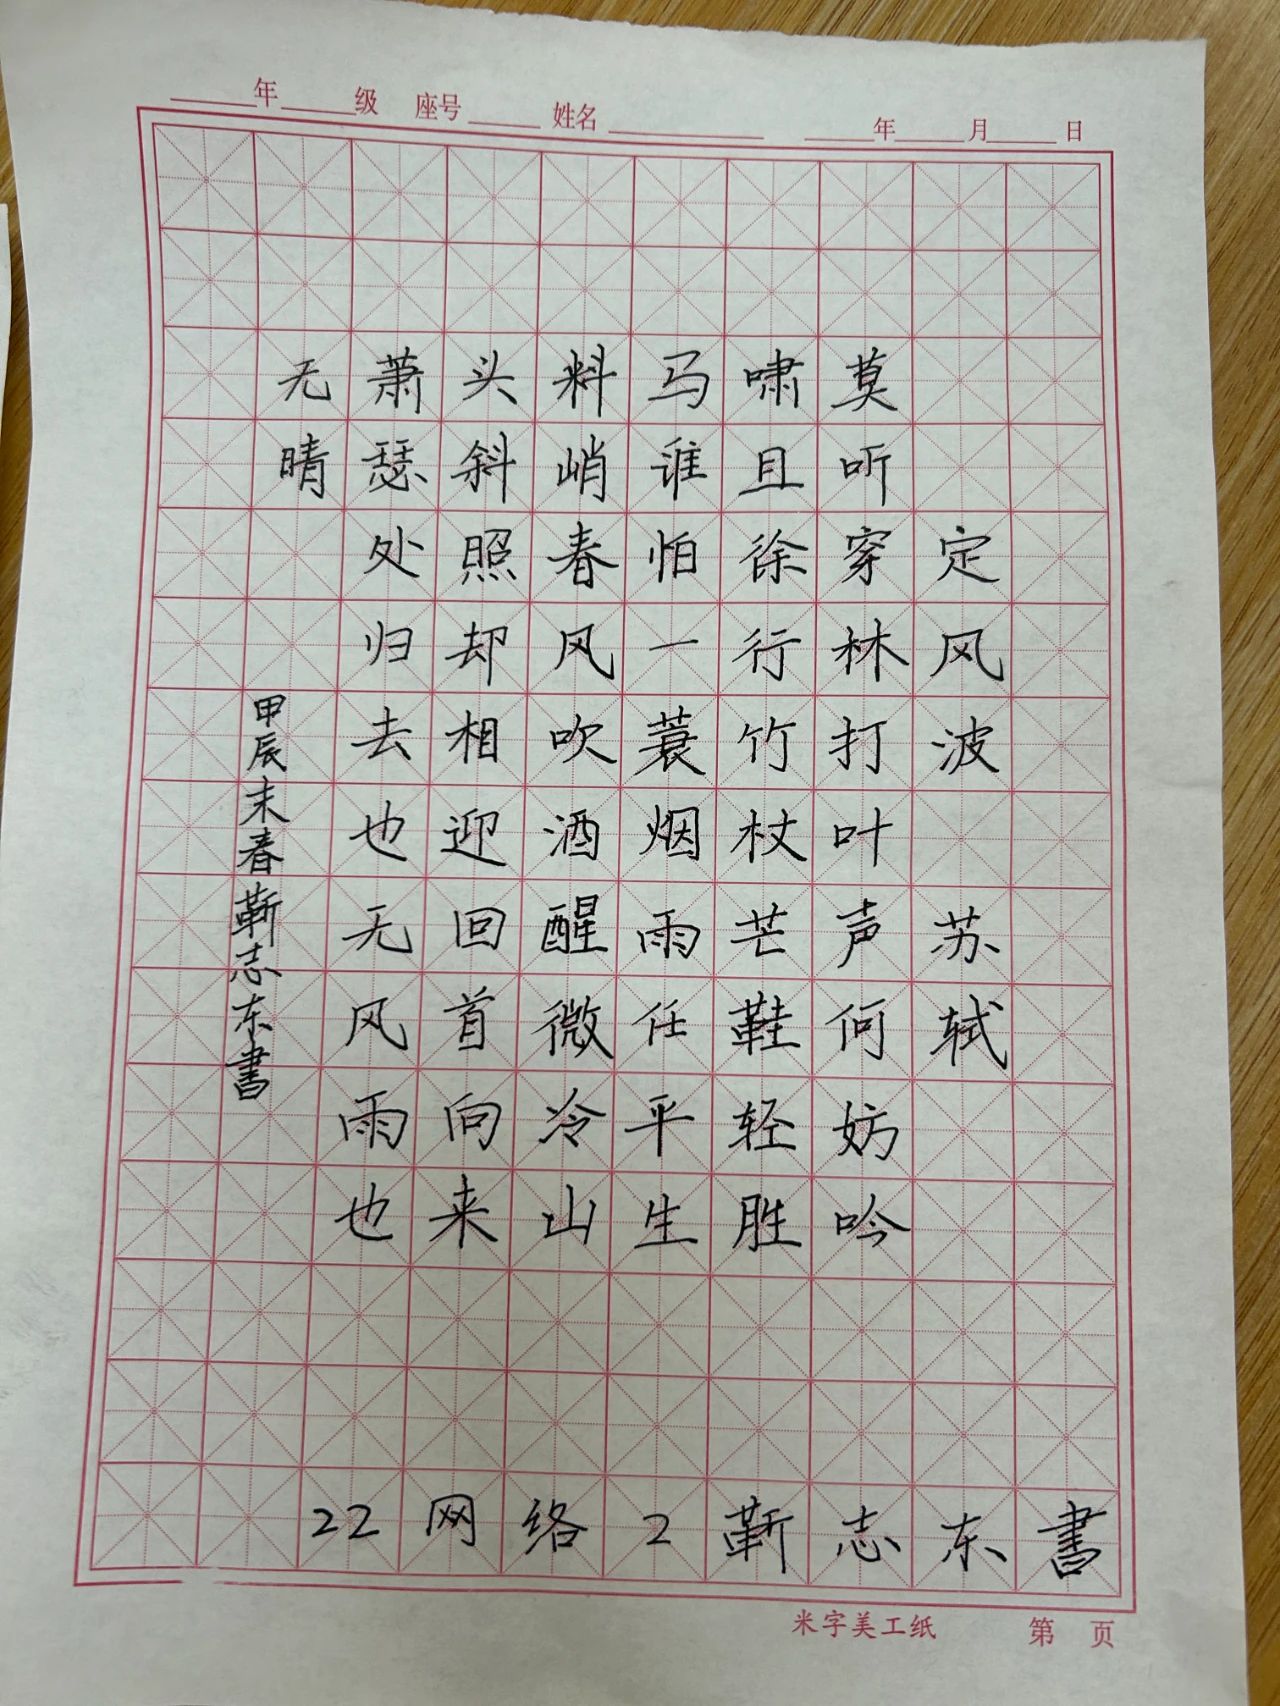 年 级 座号 姓名 年 月 日
定风波 苏轼
莫听穿林打叶声何妨吟
啸且徐行竹杖芒鞋轻胜
马谁怕一蓑烟雨任平生
料峭春风吹酒醒微冷山
头斜照却相迎回首向来
萧瑟处归去也无风雨也
无晴
甲辰末春靳志东書
22网络2靳志东書
米字美工纸 第 页